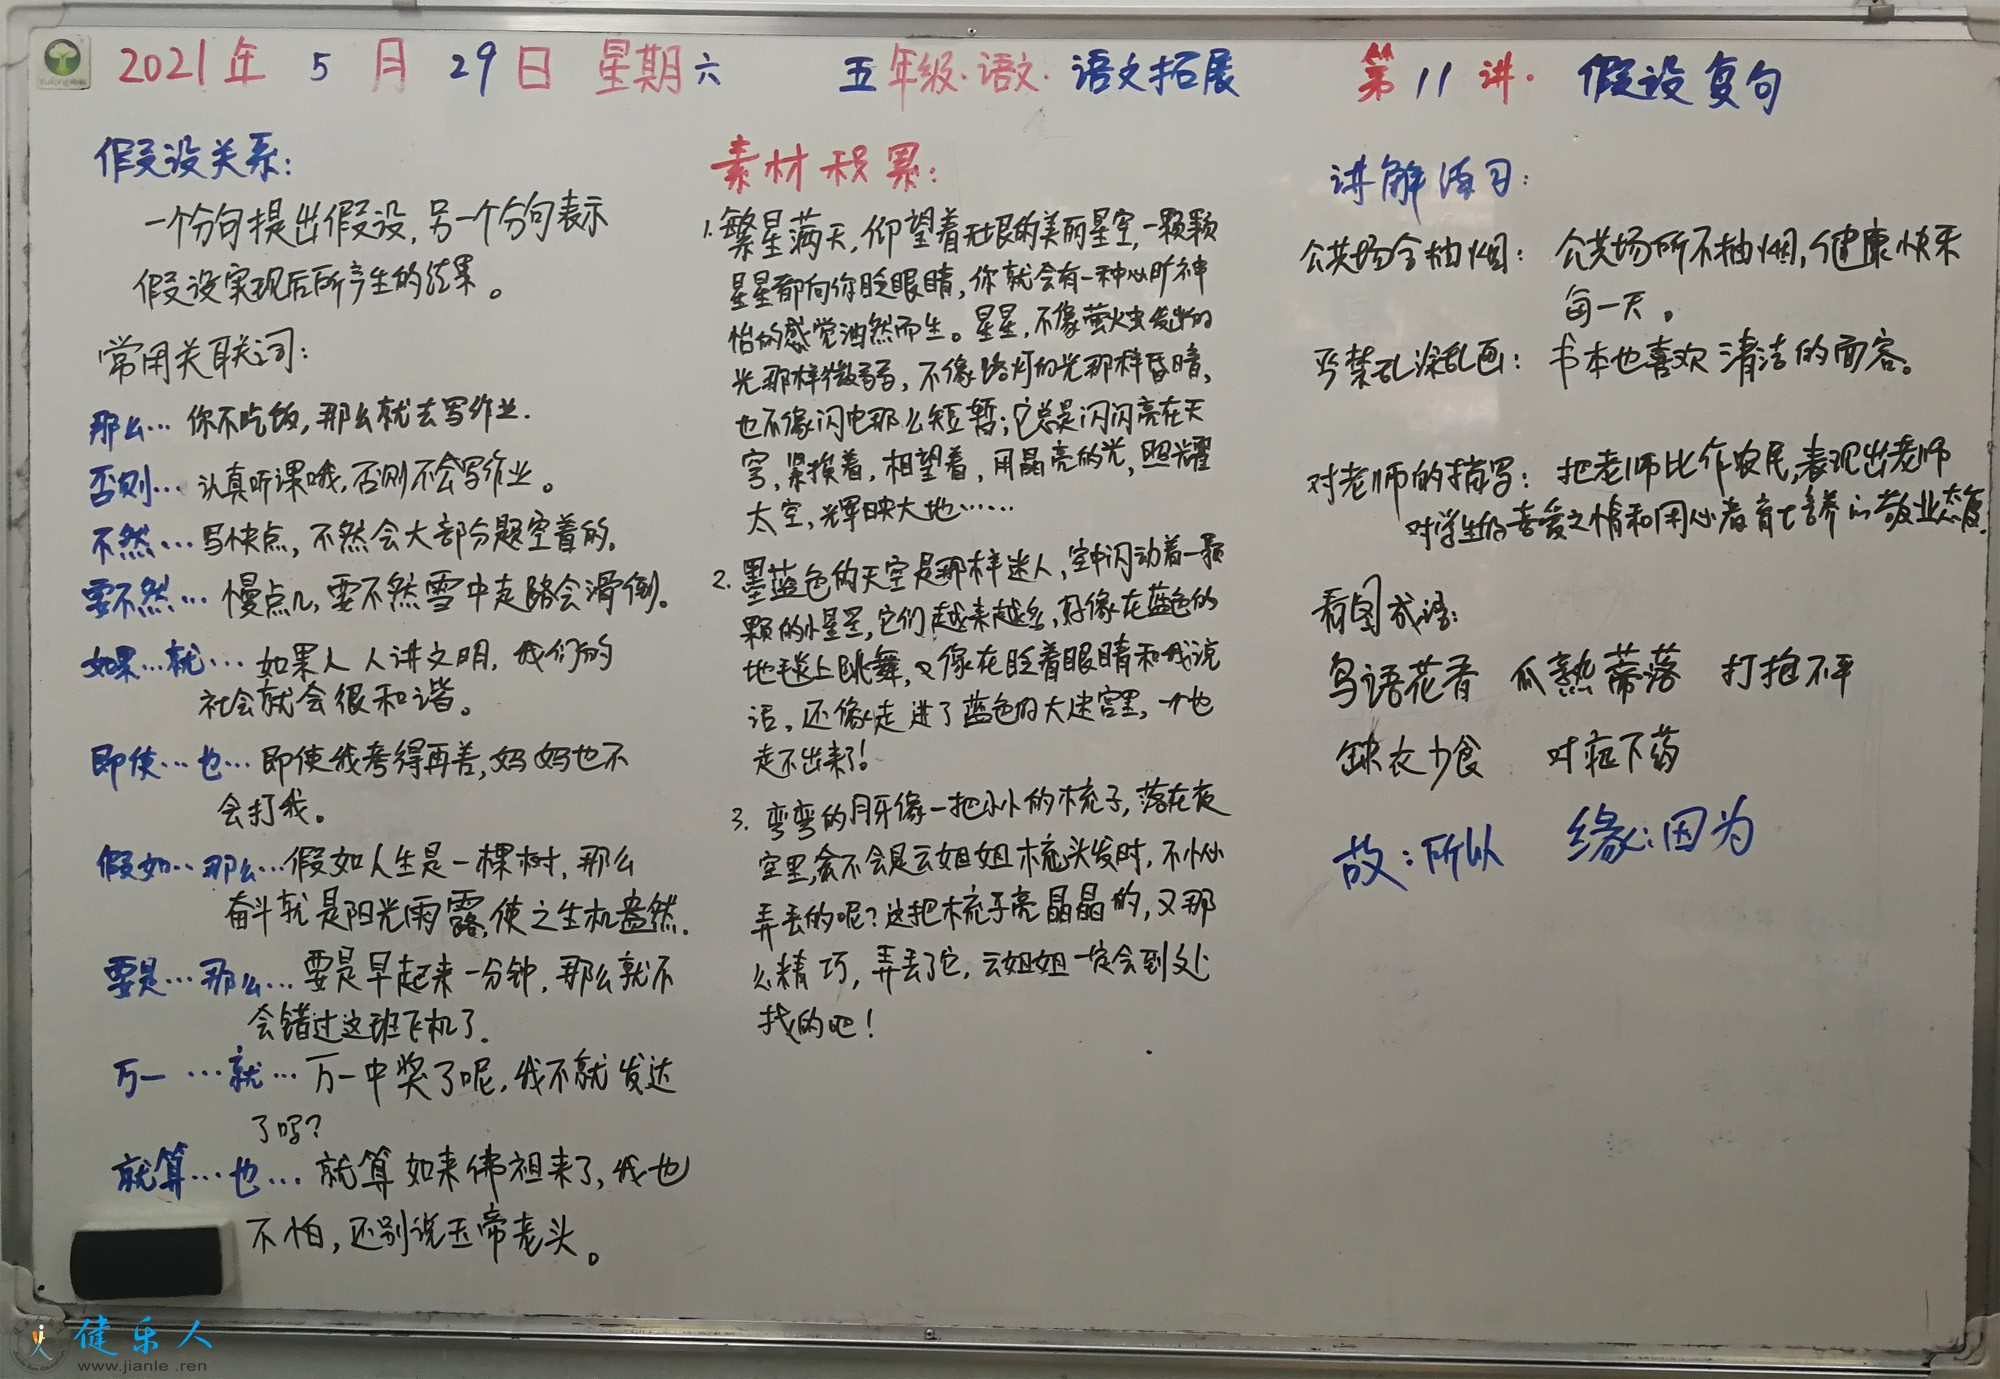 2021年 5 月 29日 星期六 五年级·语文·语文拓展 第11讲· 假设复句
假设关系:
一个分句提出假设,另一个分句表示
假设实现后所产生的结果。
常用关联词:
那么… 你不吃饭,那么就去写作业.
否则… 认真听课哦,否则不会写作业。
不然… 写快点,不然会大部分题空着的.
要不然… 慢点儿,要不然雪中走路会滑倒。
如果…就… 如果人人讲文明,我们的
社会就会很和谐。
即使…也… 即使我考得再差,妈妈也不
会打我。
假如…那么…假如人生是一棵树,那么
奋斗就是阳光雨露,使之生机盎然.
要是…那么… 要是早起来一分钟,那么就不
会错过这班飞机了.
万一…就… 万一中奖了呢,我不就发达
了吗?
就算…也… 就算如来佛祖来了,我也
不怕,还别说玉帝老头。
素材积累:
1.繁星满天,仰望着无垠的美丽星空,一颗颗
星星都向你眨眼睛,你就会有一种心旷神
怡的感觉油然而生。星星,不像萤火虫发出的
光那样微弱,不像路灯的光那样昏暗,
也不像闪电那么短暂;它总是闪闪亮在天
穹,紧挨着,相望着,用晶亮的光,照耀
太空,辉映大地……
2.墨蓝色的天空是那样迷人,空中闪动着一颗
颗的小星星,它们越来越多,好像在蓝色的
地毯上跳舞,又像在眨着眼睛和我说
话,还像走进了蓝色的大迷宫里,一个也
走不出来了!
3.弯弯的月牙像一把小小的梳子,落在夜
空里,会不会是云姐姐梳头发时,不小心
弄丢的呢?这把梳子亮晶晶的,又那
么精巧,弄丢了它,云姐姐一定会到处
找的吧!
讲解练习:
公共场合抽烟: 公共场所不抽烟,健康快乐
每一天。
严禁乱涂乱画: 书本也喜欢清洁的面容。
对老师的描写: 把老师比作农民,表现出老师
对学生的喜爱之情和用心教育培养的敬业态度.
看图成语:
鸟语花香 瓜熟蒂落 打抱不平
缺衣少食 对症下药
故:所以 缘:因为
健乐人
www.jianle.ren